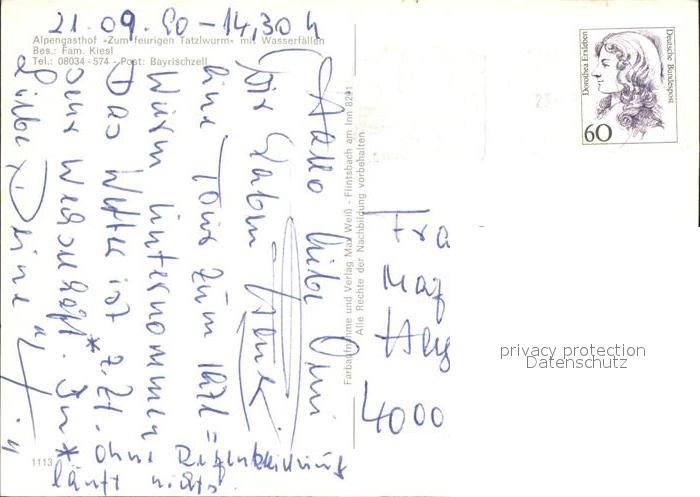 21.09.90-14,30 h
Alpengasthof »Zum feurigen Tatzlwurm« mit Wasserfällen
Bes.: Fam. Kiesl
Tel.: 08034-574 - Post: Bayrischzell
Hallo liebe Omi
Wir haben
eine Tour zum
Wurm unternommen
Das Wetter ist z.Zt.
sehr wechselhaft. In
Liebe Deine
* ohne
läuft nichts.
1113
Farbaufnahme und Verlag Max Weiß - Flintsbach am Inn 8201
Alle Rechte der Nachbildung vorbehalten
Dorothea Erxleben
Deutsche Bundespost
60
Fra
4000
privacy protection
Datenschutz